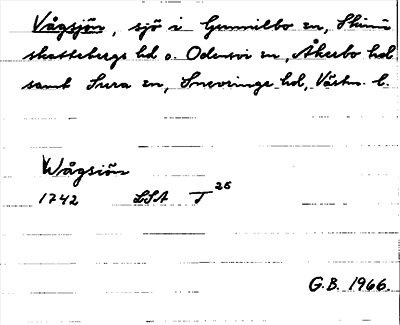 Vågsjön, sjö i Gunnilbo sn, Skinn-
skattebergs hd o. Odensvi sn, Åkerbo hd
samt Sura sn, Snevringe hd, Västm. l.
Wågsiön
1742 LSA T 26
G.B. 1966.